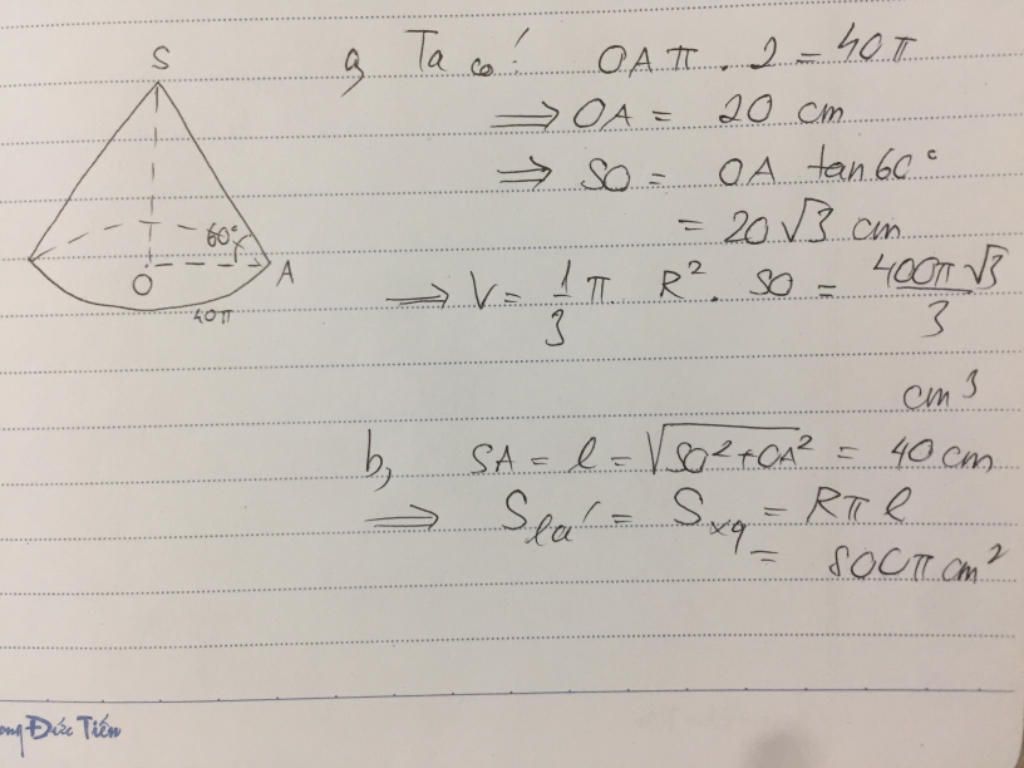 S
a, Ta có: OA π . 2 = 40π
⟹ OA = 20 cm
⟹ SO = OA tan 60°
= 20√3 cm
60°
O
A
40π
⟹ V = 1/3 π R². SO = 400π√3/3
cm³
b, SA = l = √(SO² + OA²) = 40 cm
⟹ S lá = S xq = Rπ l
= 800π cm²
ong Đức Tiến